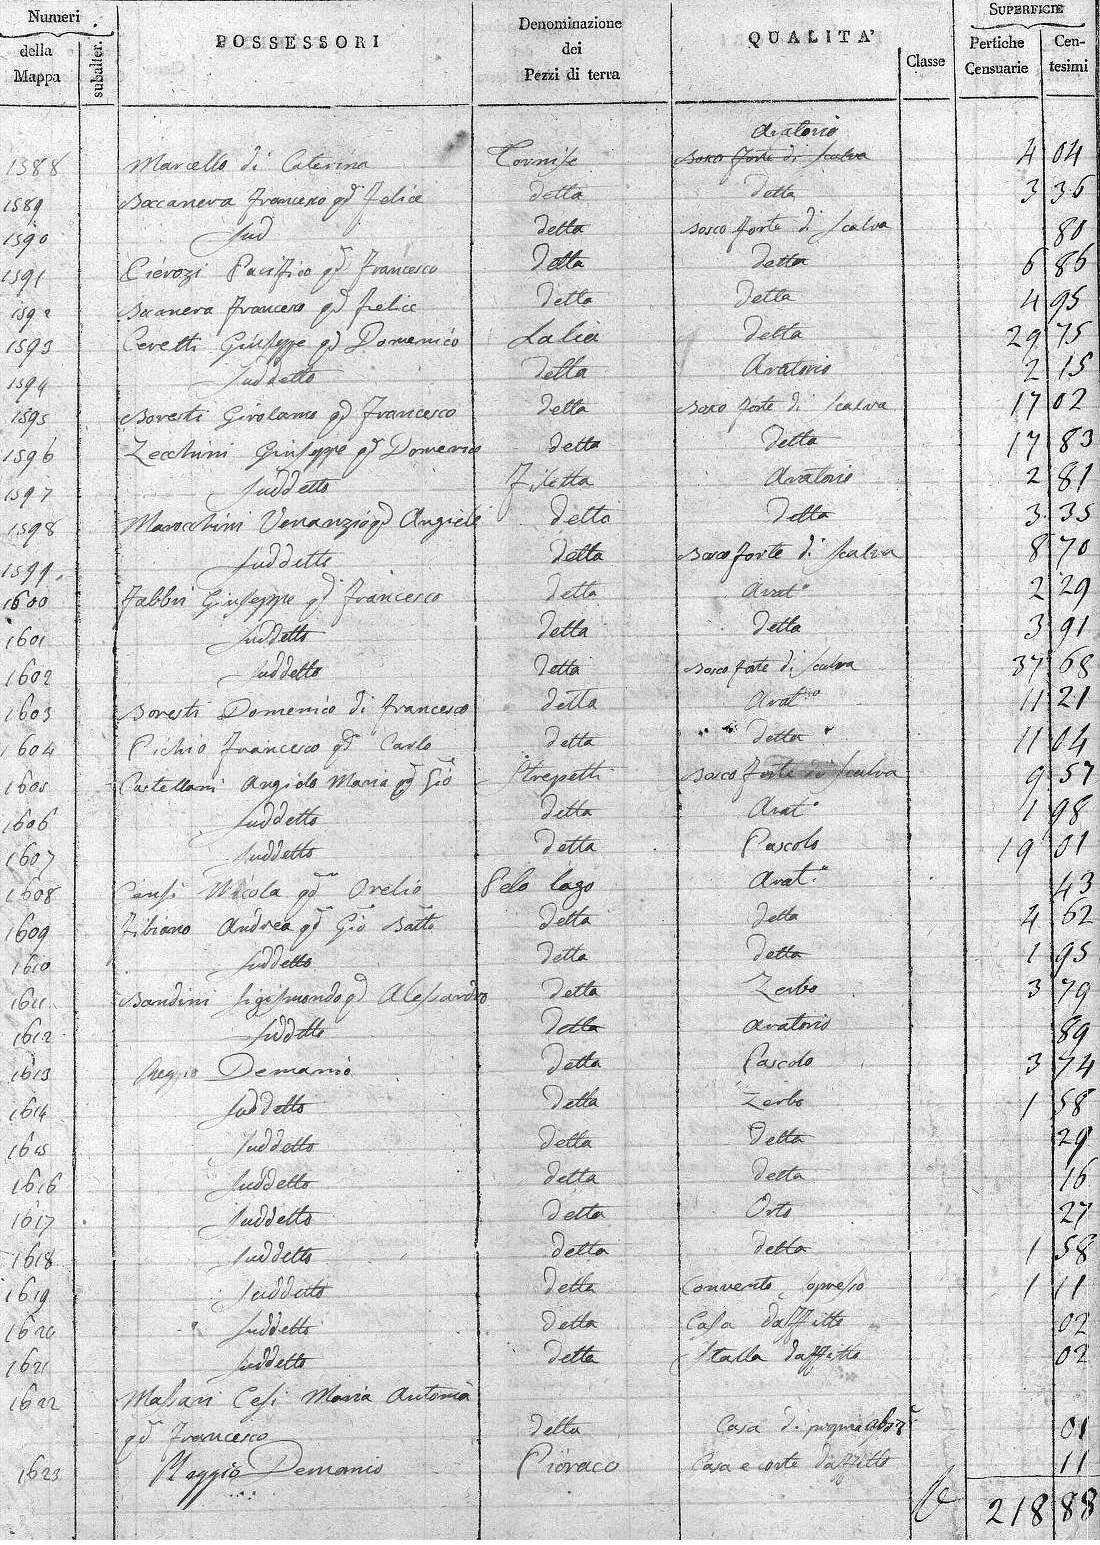 Numeri
della Mappa
subalter.
POSSESSORI
Denominazione dei Pezzi di terra
QUALITA'
Classe
SUPERFICIE
Pertiche Censuarie
Cen-tesimi
Aratorio
1588 Marcello di Caterina Tornise Bosco forte di Scalva 4 04
1589 Boccanera Francesco qd Felice detta detta 3 36
1590 Sud detta Bosco forte di Scalva 80
1591 Pierozi Pacifico qd Francesco detta detta 6 86
1592 Bocanera Francesco qd Felice detta detta 4 95
1593 Ceretti Giuseppe qd Domenico detta 29 75
1594 Suddetto detta Aratorio 2 15
1595 Boresti Girolamo qd Francesco detta Bosco forte di Scalva 17 02
1596 Zecchini Giuseppe qd Domenico detta detta 17 83
1597 Suddetto Filetta Aratorio 2 81
1598 Marochini Venanzio qd Angiele detto detta 3 35
1599 Suddetto detta Bosco forte di Scalva 8 70
1600 Fabbri Giuseppe qd Francesco detta Arat.o 2 29
1601 Suddetto detta detta 3 91
1602 Suddetto detta Bosco forte di Scalva 37 68
1603 Boresti Domenico di Francesco detta Arat.o 11 21
1604 Pichio Francesco qd Carlo detta detta 11 04
1605 Castellani Angiolo Maria qd Gio Strepetti Bosco forte di Scalva 9 57
1606 Suddetto detta Arat.o 1 98
1607 Suddetto detta Pascolo 19 01
1608 Censi Nicola qd Orelio Pelo lago Arat.o 43
1609 Fibiano Andrea qd Gio Batto detta detta 4 62
1610 Suddetto detta detta 1 95
1611 Bandini Sigismondo qd Alessandro detta Zerbo 3 79
1612 Suddetto detta Aratorio 89
1613 Reggio Demanio detta Pascolo 3 74
1614 Suddetto detta Zerbo 1 58
1615 Suddetto detta detta 29
1616 Suddetto detta detta 16
1617 Suddetto detta Orto 27
1618 Suddetto detta detta 1 58
1619 Suddetto detta Convento 1 11
1620 Suddetto detta Casa d'affitto 02
1621 Suddetto detta Stalla d'affitto 02
1622 Massari Cesi Maria Antonia
qd Francesco detta Casa di propria abitaz 01
1623 Reggio Demanio Pioraco Casa e corte d'affitto 11
218 88